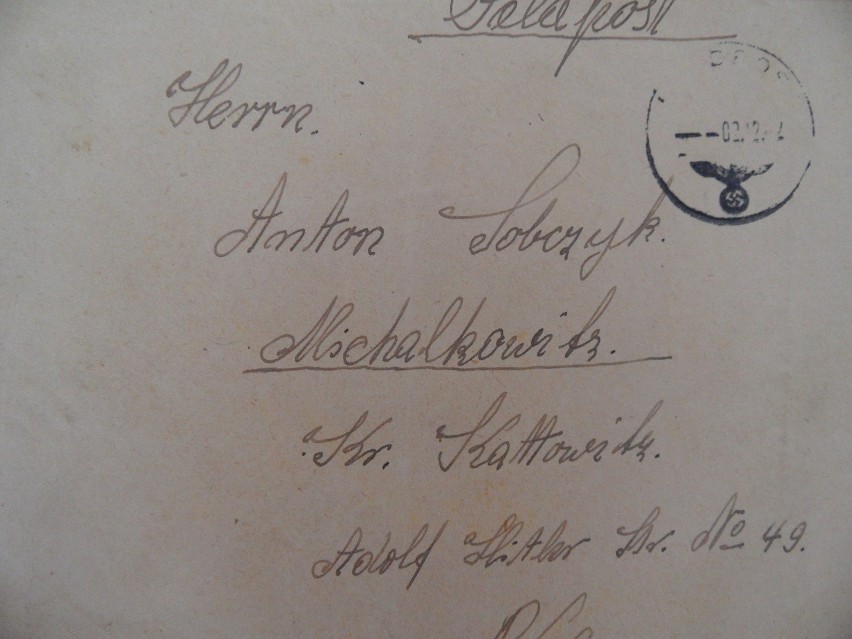 Feldpost
Herrn.
Anton Sobczyk.
Michalkowitz.
Kr. Kattowitz.
Adolf Hitler Str. No 49.